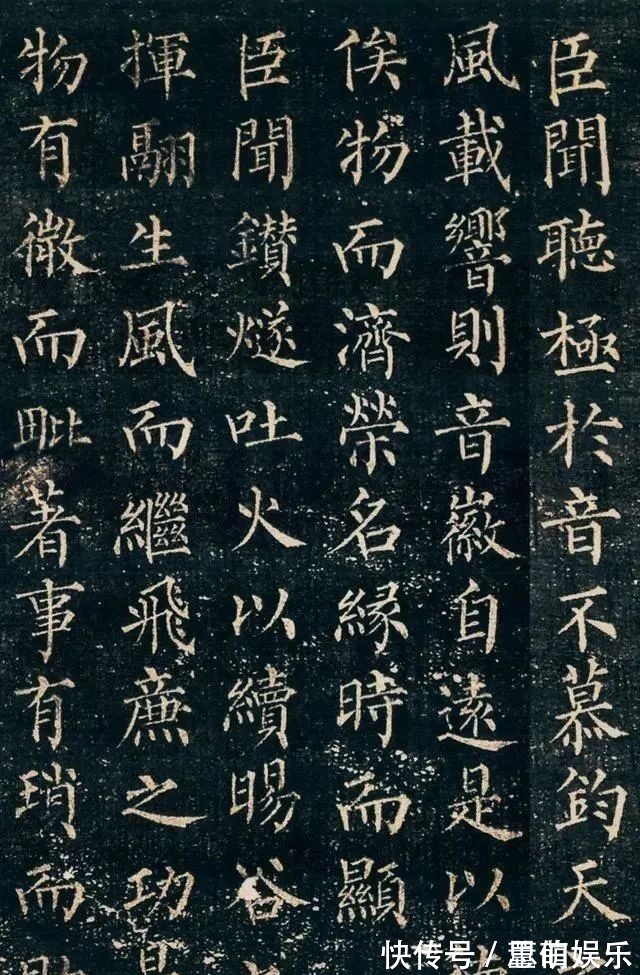 臣聞聽極於音不慕鈞天
風載響則音徽自遠是以
俟物而濟榮名緣時而顯
臣聞鑽燧吐火以續暘谷
揮翮生風而繼飛廉之功
物有微而毗著事有瑣而
快传号/墨萌娱乐